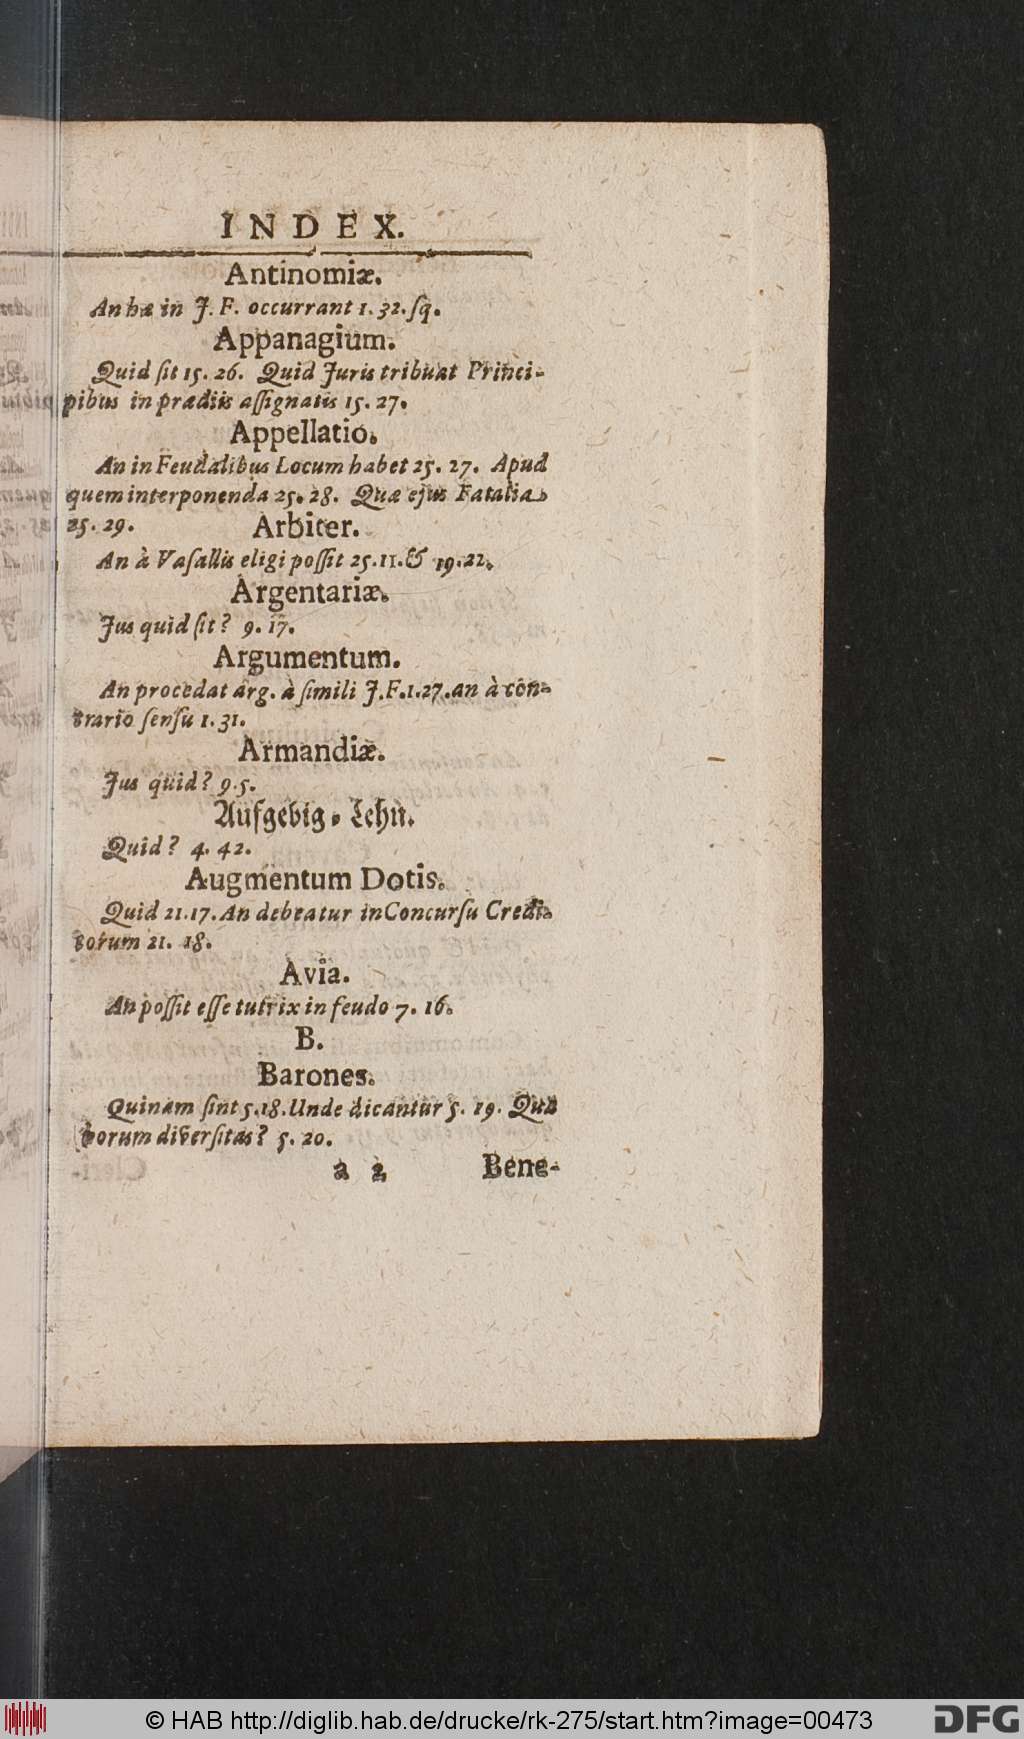 INDEX.
Antinomiæ.
An hæ in J. F. occurrant 1. 32. ſq.
Appanagium.
Quid ſit 15. 26. Quid Juris tribuat Princi-
pibus in prædiis aſſignatis 15. 27.
Appellatio.
An in Feudalibus Locum habet 25. 27. Apud
quem interponenda 25. 28. Quæ ejus Fatalia
25. 29. Arbiter.
An à Vaſallis eligi poſſit 25. 11. & 19. 22.
Argentariæ.
Jus quid ſit? 9. 17.
Argumentum.
An procedat arg. à ſimili J. F. 1. 27. an à con-
trario ſenſu 1. 31.
Armandiæ.
Jus quid? 9. 5.
Aufgebig-Lehn.
Quid? 4. 42.
Augmentum Dotis.
Quid 21. 17. An debeatur in Concurſu Credi-
torum 21. 18.
Avia.
An poſſit eſſe tutrix in feudo 7. 16.
B.
Barones.
Quinam ſint 5. 18. Unde dicantur 5. 19. Quæ
horum diverſitas? 5. 20.
a 2 Bene-
© HAB http://diglib.hab.de/drucke/rk-275/start.htm?image=00473
DFG